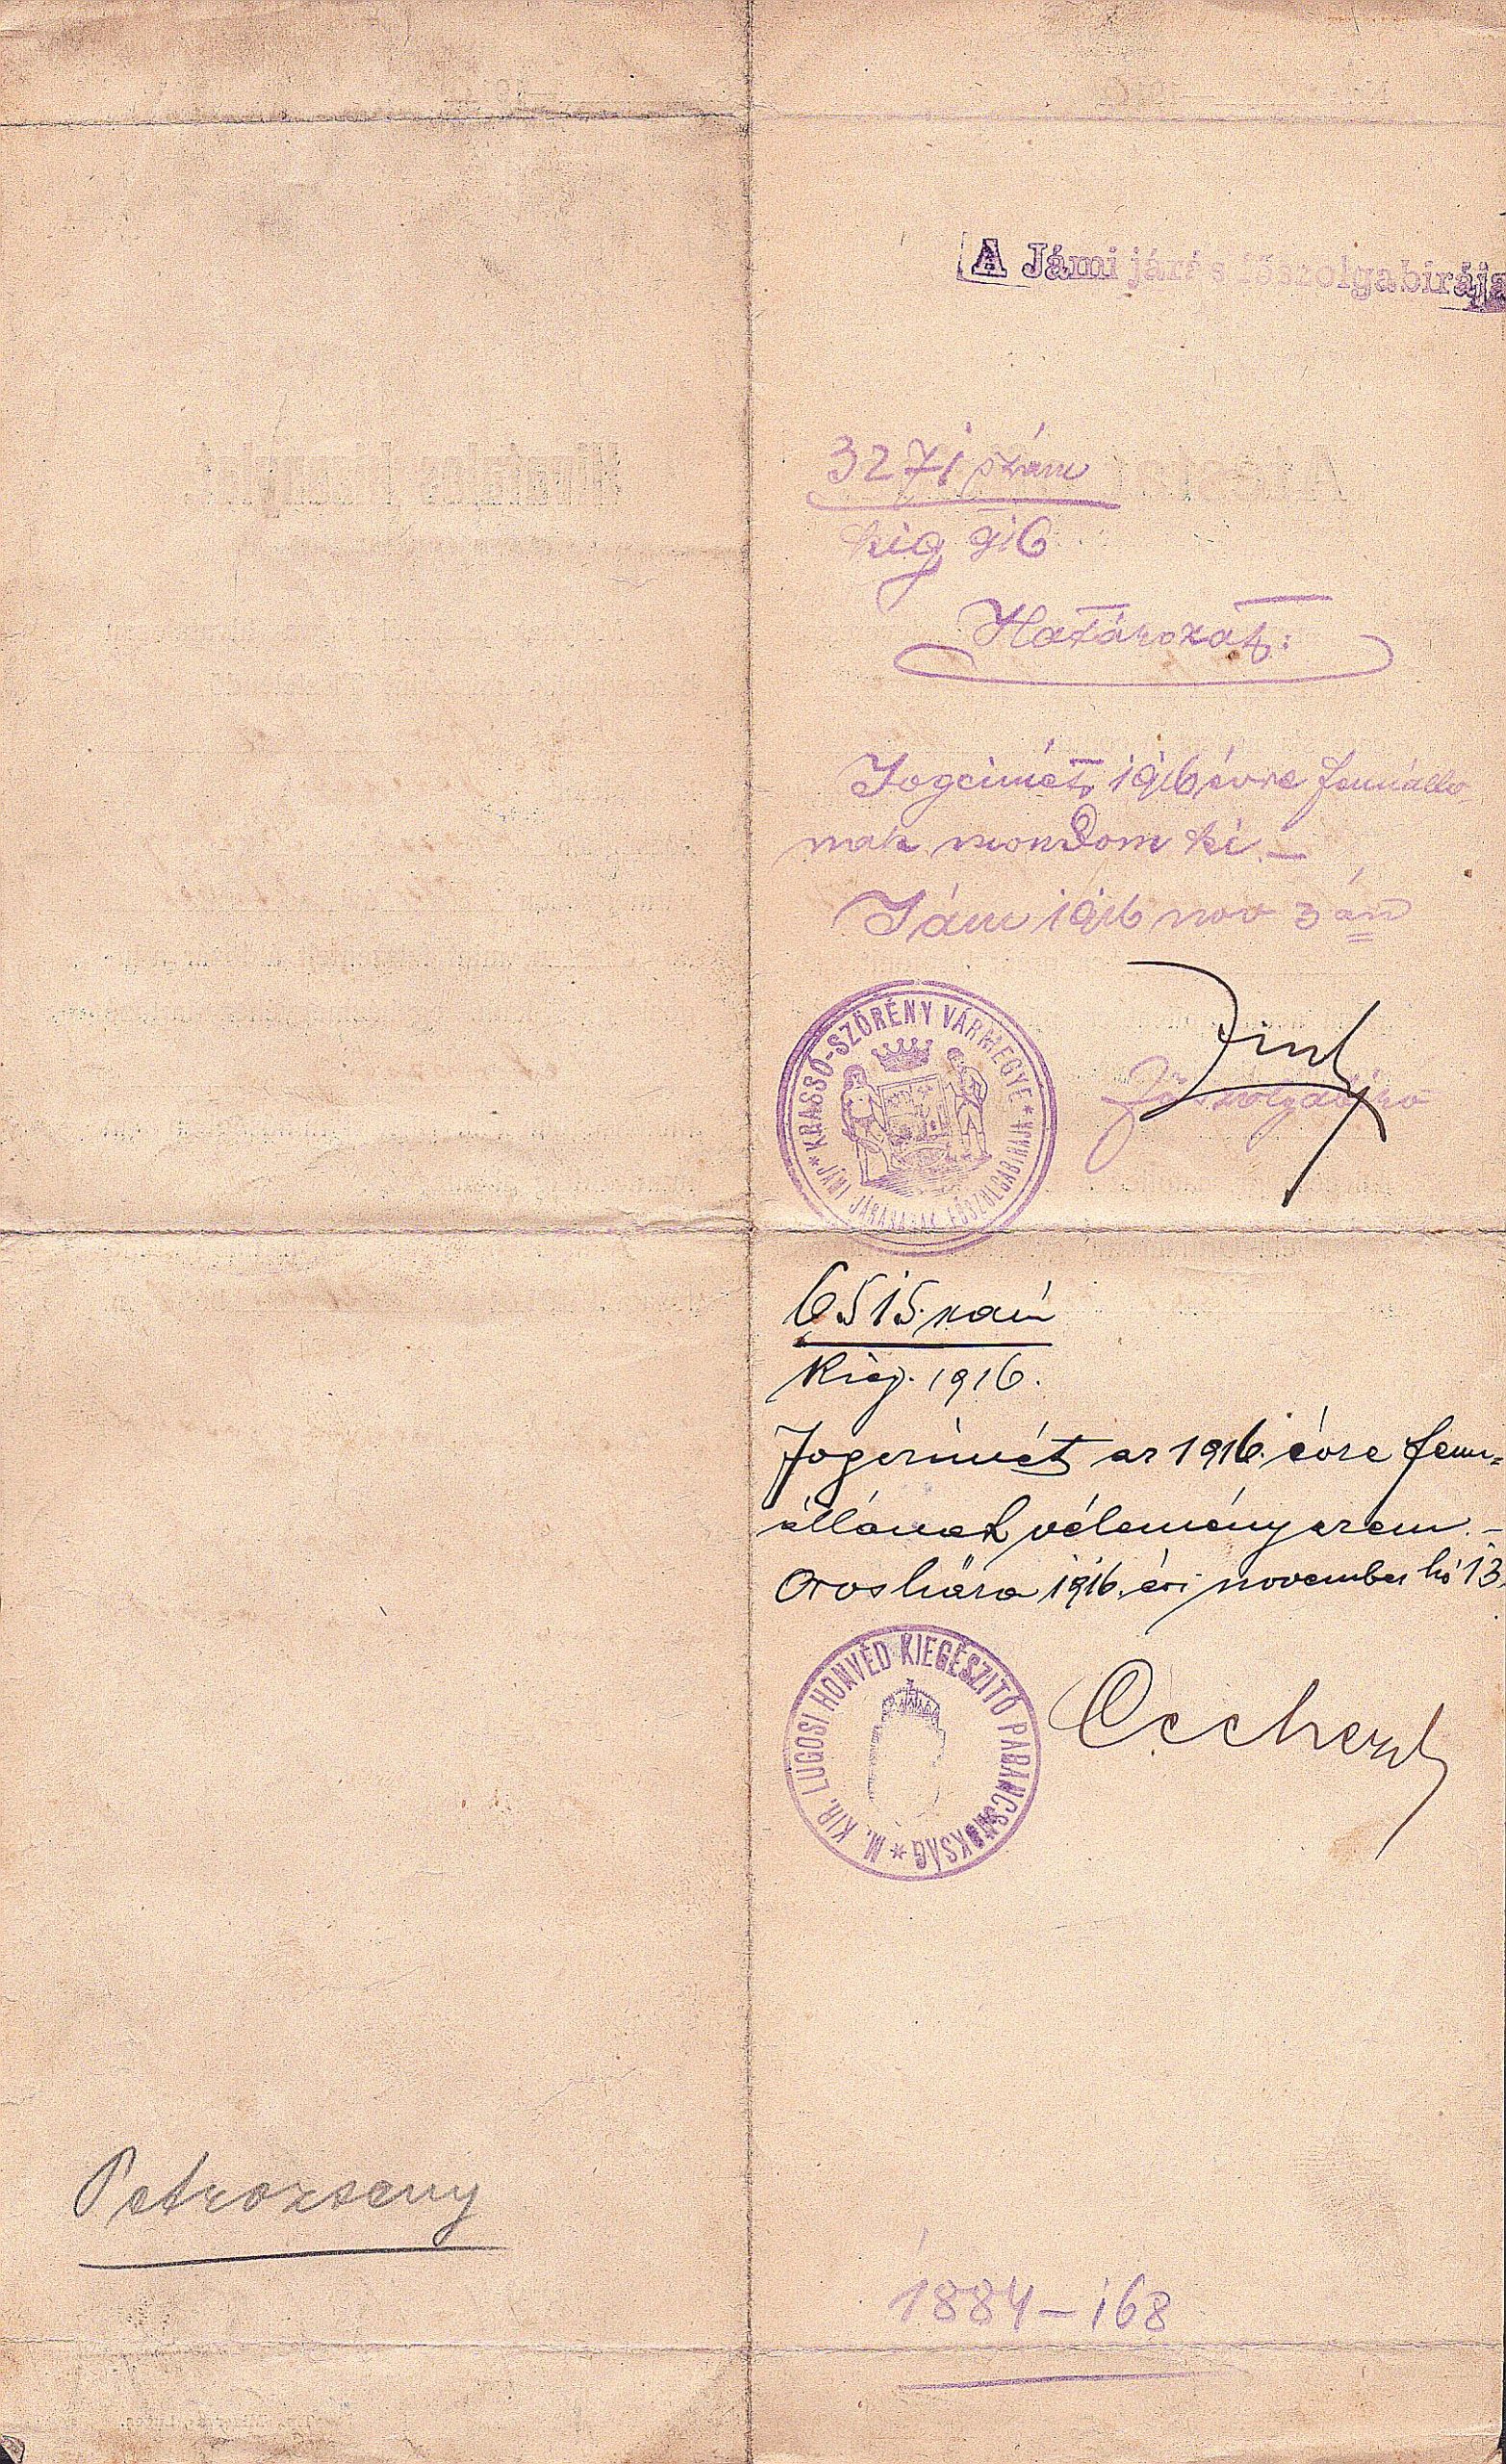 A Jámi járás főszolgabirája
3271 szám
kig 916
Határozat:
Jogcimét 1916 évre fennálló-
nak mondom ki. —
Jám 1916 nov 3 án
főszolgabiró
* KRASSÓ-SZÖRÉNY VÁRMEGYE *
JÁMI JÁRÁSÁNAK FŐSZOLGABIRÁJA
6515. szám
Kieg. 1916.
Jogcimét az 1916. évre fenn-
állónak véleményezem. —
1916. évi november hó 13.
M. KIR. LUGOSI HONVÉD KIEGÉSZITŐ PARANCSNOKSÁG *
Petrozseny
1884 – 168